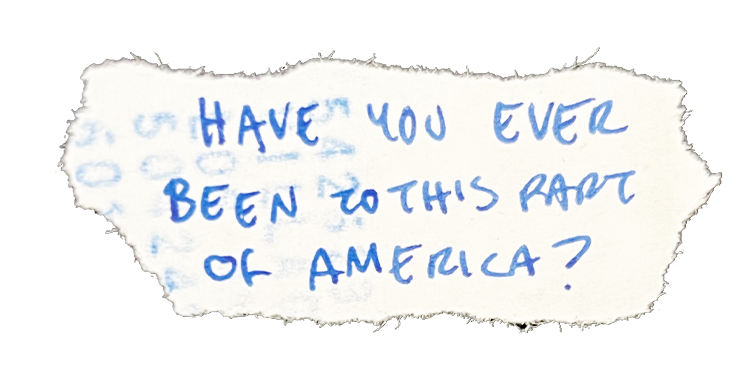 HAVE YOU EVER
BEEN TO THIS PART
OF AMERICA?